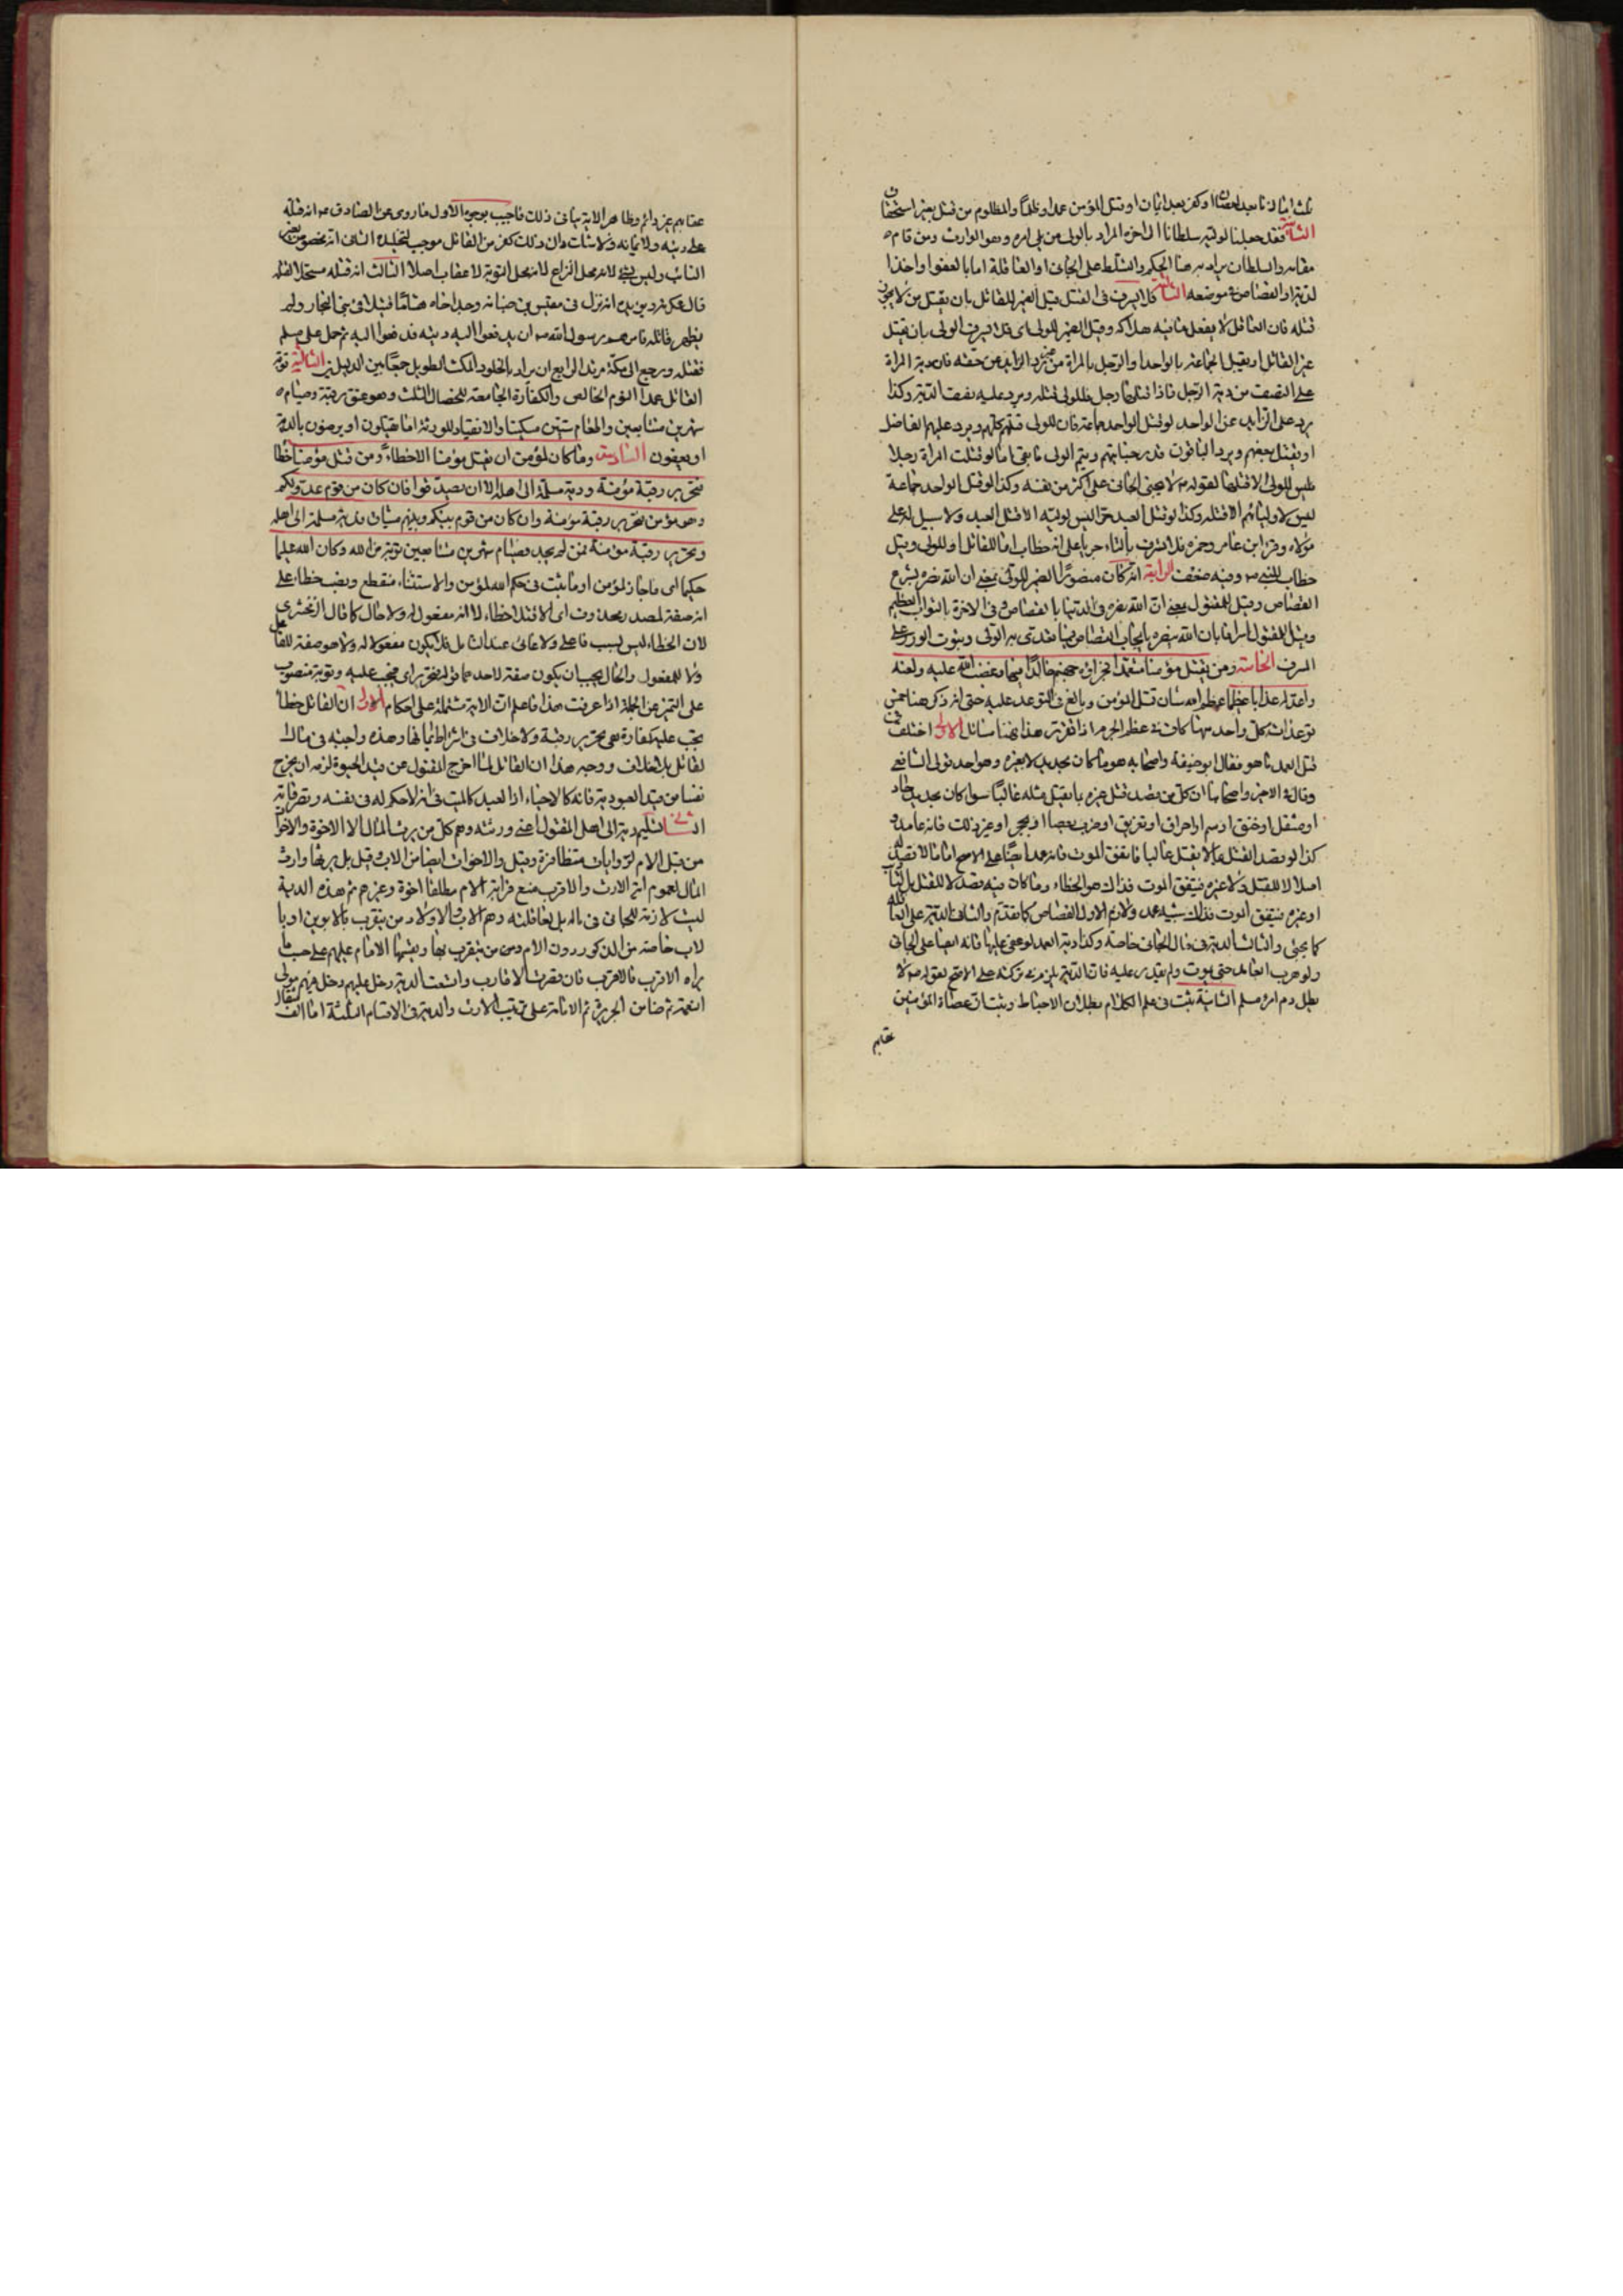 ثلث اما زنا بعد احصان او كفر بعد ايمان او قتل المؤمن عمدا وظلما والمظلوم من قتل بغير استحقاق
الثانية فقد جعلنا لوليه سلطانا الى اخره المراد بالولى من يلى امره وهو الوارث ومن قام
مقامه والسلطان يراد به هنا الحكم والتسلط على الجانى او العاقلة اما بالعفو او اخذ
الدية او القصاص فى موضعه الثالثة فلا يسرف فى القتل قيل الضمير للقاتل بان يقتل من لا يجوز
قتله فان العاقل لا يفعل ما فيه هلاكه وقيل الضمير للولى اى فلا يسرف الولى بان يقتل
غير القاتل او يقتل الجماعة بالواحد او الرجل بالمراة من غير رد الزايد عن حقه فان دية المراة
على النصف من دية الرجل فاذا قتلها رجل فللولى قتله ويرد عليه نصف الدية وكذا
يرد على الزايد عن الواحد لو قتل الواحد جماعة فان للولى قتلهم كلهم ويرد عليهم الفاضل
او يقتل بعضهم ويرد الباقون قدر جنايتهم ويتم الولى ما بقى اما لو قتلت امراة رجلا
فليس للولى الا قتلها لقوله م لا يجنى الجانى على اكثر من نفسه وكذا لو قتل الواحد جماعة
ليس لاوليائهم الا قتله وكذا لو قتل العبد حرا ليس لوليه الا قتل العبد ولا سبيل له على
مولاه وقرا ابن عامر وحمزه فلا تسرف بالتاء جريا على انه خطاب اما للقاتل او للولى وقيل
خطاب للنبى ص وفيه ضعف الرابعة انه كان منصورا الضمير للولى بمعنى ان الله نصره بشرع
القصاص وقيل للمقتول بمعنى ان الله نصره فى الدنيا بالقصاص وفى الاخرة بالثواب العظيم
وقيل للمقتول اسرافا بان الله نصره بايجاب القصاص فيما يتعدى به الولى وثبوت الوزر على
المسرف الخامسة ومن يقتل مؤمنا متعمدا فجزاؤه جهنم خالدا فيها وغضب الله عليه ولعنه
واعد له عذابا عظيما عظم الله شان قتل المؤمن وبالغ فى التوعد عليه حتى انه ذكر هنا خمس
توعدات كل واحد منها كاف فى عظم الجرم اذا تقرر هذا فهنا مسائل الاولى اختلف فى
قتل العمد ما هو فقال ابو حنيفة واصحابه هو ما كان بحديد لا بغيره وهو احد قولى الشافعى
وقال فى الاخر واصحابنا ان كل من قصد قتل غيره بما يقتل مثله غالبا سوا كان بحديد حاد
او مثقل او خنق او سم او احراق او تغريق او ضرب بعصا او بحجر او غير ذلك فانه عامد و
كذا لو قصد القتل بما لا يقتل غالبا فاتفق الموت فانه عمد ايضا على الاصح اما ما لا قصد فيه
اصلا لا للقتل ولا غيره فيتفق الموت فذاك هو الخطاء وما كان فيه قصد لا للقتل بل للتاديب
او غيره فيتفق الموت فذلك شبيه عمد ولازم الاول القصاص كما تقدم والثانى الدية على العاقلة
كما يجئ والثالث الدية فى مال الجانى خاصة وكذا دية العمد لو عفى عليها فانه ايضا على الجانى
ولو هرب العامد حتى يموت ولم يقدر عليه فان الدية يلزم فى تركته على الاصح لقوله ص لا
يطل دم امرء مسلم الثانية ثبت فى علم الكلام بطلان الاحباط وثبت ان عصاة المؤمنين
عقابهم
عقابهم غير دائم وظاهر الاية ينافى ذلك فاجيب بوجوه الاول ما روى عن الصادق م انه قتله
على دينه ولايمانه ولا شك ان ذلك كفر من القاتل موجب لتخليده الثانى انه مخصوص بغير
التائب وليس بشئ لانه محل النزاع لان محل التوبة لا عقاب اصلا الثالث انه قتله مستحلا لقتله
قال عكرمة وغيره انه نزل فى مقيس بن ضبابة وجد اخاه هشاما قتيلا فى بنى النجار ولم
يظهر قاتله فامرهم رسول الله ص ان يدفعوا اليه ديته فدفعوا اليه ثم حمل على مسلم
فقتله ورجع الى مكة مرتدا الرابع ان يراد بالخلود المكث الطويل جمعا بين الدليلين الثالثة توبة
القاتل عمدا الندم الخالص والكفارة الجامعة للخصال الثلث وهو عتق رقبة وصيام
شهرين متتابعين واطعام ستين مسكينا والانقياد للورثة اما يقتلون او يرضون بالدية
او يعفون السادسة وما كان لمؤمن ان يقتل مؤمنا الا خطاء ومن قتل مؤمنا خطا
فتحرير رقبة مؤمنة ودية مسلمة الى اهله الا ان يصدقوا فان كان من قوم عدو لكم
وهو مؤمن فتحرير رقبة مؤمنة وان كان من قوم بينكم وبينهم ميثاق فدية مسلمة الى اهله
وتحرير رقبة مؤمنة فمن لم يجد فصيام شهرين متتابعين توبة من الله وكان الله عليما
حكيما اى ما جاز لمؤمن او ما ثبت فى حكم الله لمؤمن والاستثناء منقطع ونصب خطاء على
انه صفة لمصدر محذوف اى الا قتلا خطاء لا انه مفعول له ولا حال كما قال الزمخشرى
لان الخطاء ليس بسبب فاعلى ولا غائى عندنا بل فلا يكون مفعولا له ولا هو صفة للفاعل
ولا للمفعول والحال يجب ان يكون صفة لاحدهما قوله فتحرير اى فيجب عليه وتوبة منصوب
على التميز عن الجملة اذا عرفت هذا فاعلم ان الاية مشتملة على احكام الاول ان القاتل خطأ
يجب عليه كفارة هى تحرير رقبة ولا خلاف فى اشتراط ايمانها وهذه واجبة فى مال
القاتل بلا خلاف ووجه هذا ان القاتل لما اخرج المقتول عن قيد الحيوة لزمه ان يخرج
نفسا من قيد العبودية فانه كالاحياء اذ العبد كالميت فى انه لا حكم له فى نفسه وتصرفاته
الثانى تسليم دية الى اهل المقتول اعنى ورثته وهم كل من يرث المال الا الاخوة والاخوات
من قبل الام لروايات متظافرة وقيل والاخوات ايضا من الاب وقيل بل يرثها وارث
المال لعموم اية الارث والاقرب منع قرابة الام مطلقا اخوة وغيرهم ثم هذه الدية
ليست لازمة للجانى فى ماله بل لعاقلته وهم الاب والاولاد ومن يتقرب بالابوين او با
لاب خاصة من الذكور دون الام ومن يتقرب بها ويقسمها الامام عليهم على حسب ما
يراه الاقرب فالاقرب فان قصرت الاقارب واتسعت الدية دخل عليهم ودخل فيهم مولى
النعمة ثم ضامن الجريرة ثم الامام على ترتيب الارث والدية فى الاقسام الثلثة اما الف مثقال